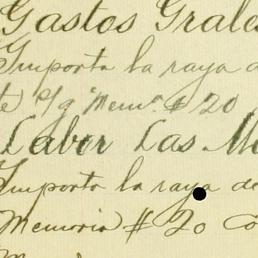 Gastos Grales
Importa la raya d
te) s/g Memª # 20
Labor Las M
Importa la raya de
Memoria # 20 Co